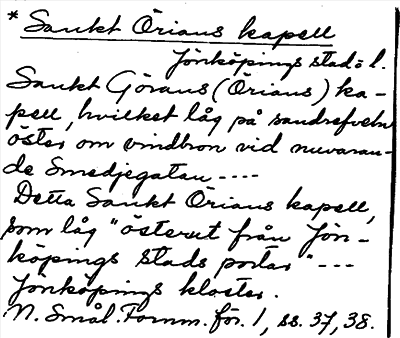 * Sankt Örians kapell
Jönköpings stads l.
Sankt Görans (Örians) ka-
pell, hvilket låg på sandrefveln
öster om vindbron vid nuvaran-
de Smedjegatan ----
Detta Sankt Örians kapell,
som låg "österut från Jön-
köpings stads portar" ---
Jönköpings kloster.
N. Smål. Fornm. för. 1, ss. 37, 38.